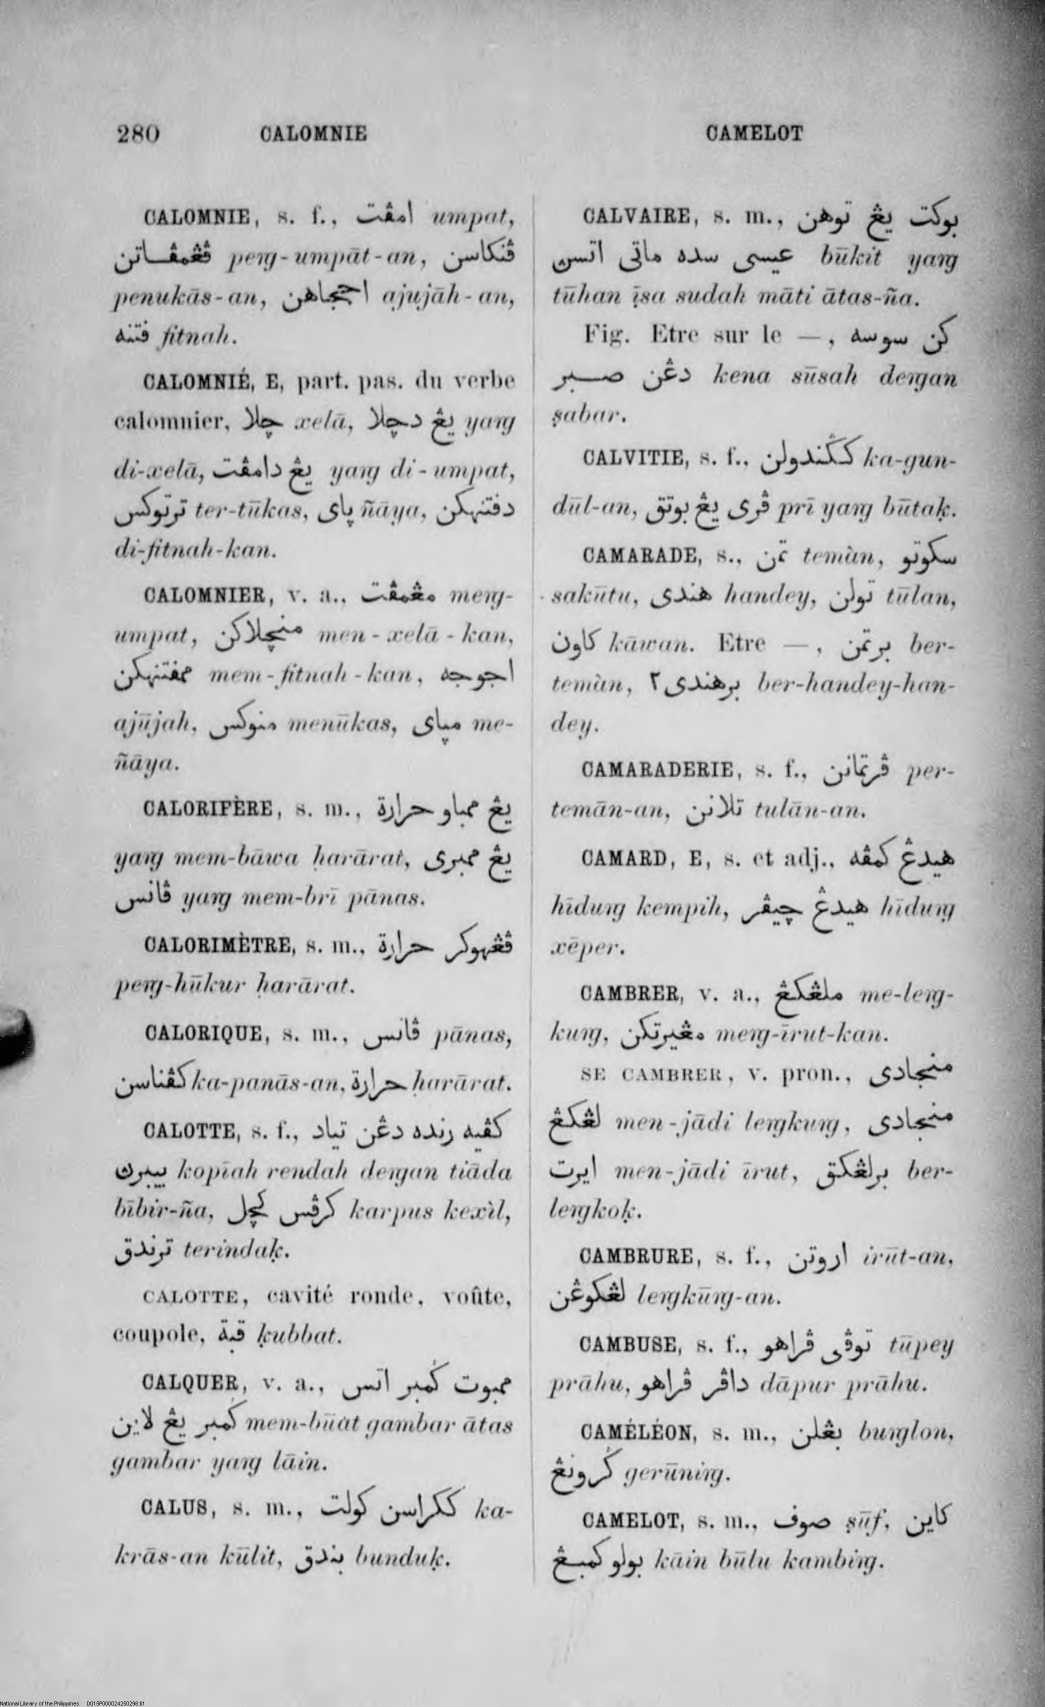 280 CALOMNIE CAMELOT
CALOMNIE, s. f., امڤت umpat,
ڤڠمڤاتن peng-umpāt-an, ڤنکاسن
penukās-an, اججاهن ajujāh-an,
فتنه fitnah.
CALOMNIÉ, E, part. pas. du verbe
calomnier, چلا xelā, يڠ دچلا yang
di-xelā, يڠ دامڤت yang di-umpat,
ترتوکس ter-tūkas, ڽاي ñāya, دفتنهکن
di-fitnah-kan.
CALOMNIER, v. a., مڠمڤت meng-
umpat, منچلاکن men-xelā-kan,
ممفتنهکن mem-fitnah-kan, اجوجه
ajūjah, منوکس menūkas, مڽاي me-
ñāya.
CALORIFÈRE, s. m., يڠ ممباو حرارة
yang mem-bāwa ḥarārat, يڠ ممبري
ڤانس yang mem-brī pānas.
CALORIMÈTRE, s. m., ڤڠهوکر حرارة
peng-hūkur ḥarārat.
CALORIQUE, s. m., ڤانس pānas,
کڤناسن ka-panās-an, حرارة ḥarārat.
CALOTTE, s. f., کڤيه رنده دڠن تياد
بيبرڽ kopīah rendah dengan tiāda
bībir-ña, کرڤس کچل karpus kexìl,
ترندق terindaḳ.
CALOTTE, cavité ronde, voûte,
coupole, قبة ḳubbat.
CALQUER, v. a., ممبوت ݢمبر اتس
ݢمبر يڠ لاين mem-būàt gambar ātas
gambar yang lāin.
CALUS, s. m., ککراسن کولت ka-
krās-an kūlit, بندق bunduḳ.
CALVAIRE, s. m., بوکت يڠ توهن
عيسى سده ماتي اتسڽ būkit yang
tūhan īsa sudah māti ātas-ña.
Fig. Etre sur le —, کن سوسه
دڠن صبر kena sūsah dengan
ṣabar.
CALVITIE, s. f., کݢندولن ka-gun-
dūl-an, ڤري يڠ بوتق prī yang būtaḳ.
CAMARADE, s., تمن temàn, سکوتو
sakūtu, هندى handey, تولن tūlan,
کاون kāwan. Etre —, برتمن ber-
temàn, برهندى٢ ber-handey-han-
dey.
CAMARADERIE, s. f., ڤرتمانن per-
temān-an, تلانن tulān-an.
CAMARD, E, s. et adj., هيدڠ کمڤه
hīdung kempih, هيدڠ چيڤر hīdung
xēper.
CAMBRER, v. a., ملڠکڠ me-leng-
kung, مڠيرتکن meng-īrut-kan.
SE CAMBRER, v. pron., منجادي
لڠکڠ men-jādi lengkung, منجادي
ايرت men-jādi īrut, برلڠکق ber-
lengkoḳ.
CAMBRURE, s. f., اروتن irūt-an,
لڠکوڠن lengkūng-an.
CAMBUSE, s. f., توڤى ڤراهو tūpey
prāhu, داڤر ڤراهو dāpur prāhu.
CAMÉLÉON, s. m., بڠلن bunglon,
ݢرونڠ gerūning.
CAMELOT, s. m., صوف ṣūf, کاين
بولو کمبڠ kāin būlu kambing.
National Library of the Philippines